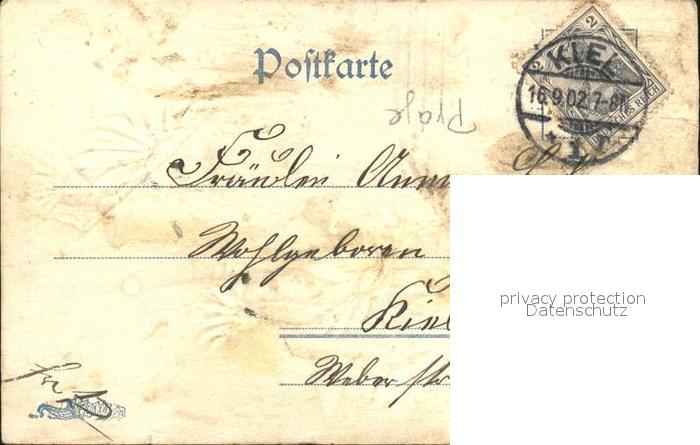 Postkarte
2 2
KIEL
16.9.02.7-8N
* 1 г
REICH
Präge
Fräulein Anm
Wohlgeboren
Kiel
Weber st
privacy protection
Datenschutz